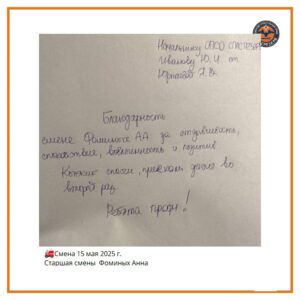 Начальнику ОПСО СПАСРЕЗЕРВ
Иванову Ю.И. от
Благодарность
смене Фоминых АА за отзывчивость,
спокойствие, вовлеченность и позитив.
Котика спасли, приехали даже во
второй раз
Ребята профи!
Смена 15 мая 2025 г.
Старшая смены Фоминых Анна